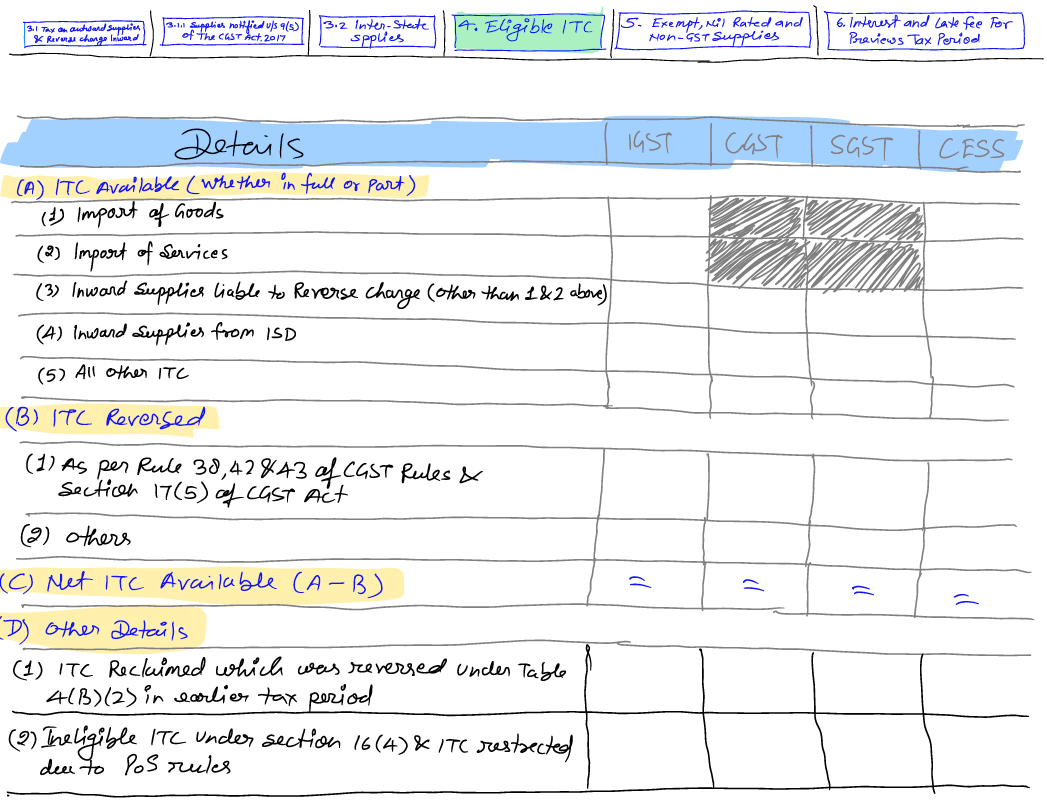 3.1 Tax on outward Supplies
& Reverse charge Inward
3.1.1 Supplies notified u/s 9(5)
of The CGST Act, 2017
3.2 Inter-State
spplies
4. Eligible ITC
5. Exempt, Nil Rated and
Non-GST Supplies
6. Interest and Late fee For
Previews Tax Period
Details IGST CGST SGST CESS
(A) ITC Available (Whether in full or Part)
(1) Import of Goods
(2) Import of Services
(3) Inward Supplies liable to Reverse Charge (other than 1 & 2 above)
(4) Inward Supplies from ISD
(5) All other ITC
(B) ITC Reversed
(1) As per Rule 38, 42 & 43 of CGST Rules &
Section 17(5) of CGST Act
(2) others
(C) Net ITC Available (A - B) = = = =
(D) Other Details
(1) ITC Reclaimed which was reversed under Table
4(B)(2) in earlier tax period
(2) Ineligible ITC under section 16(4) & ITC restricted
due to PoS rules